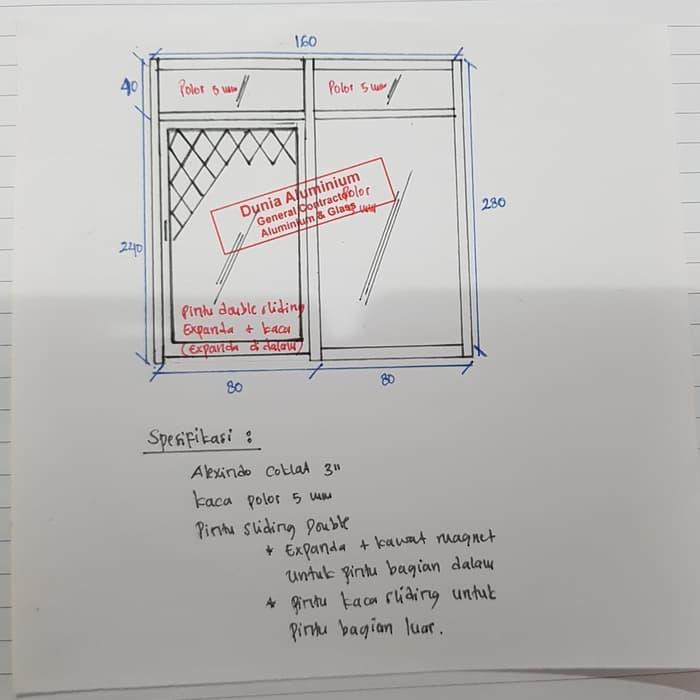 160
40
Polos 5 mm
Polos 5 mm
Dunia Aluminium
General Contractor
Aluminium & Glass
Polos
5 mm
280
240
Pintu double sliding
Expanda + kaca
(Expanda di dalam)
80
80
Spesifikasi :
Alexindo Coklat 3"
kaca polos 5 mm
Pintu sliding Double
* Expanda + kawat magnet
untuk pintu bagian dalam
* pintu kaca sliding untuk
pintu bagian luar.